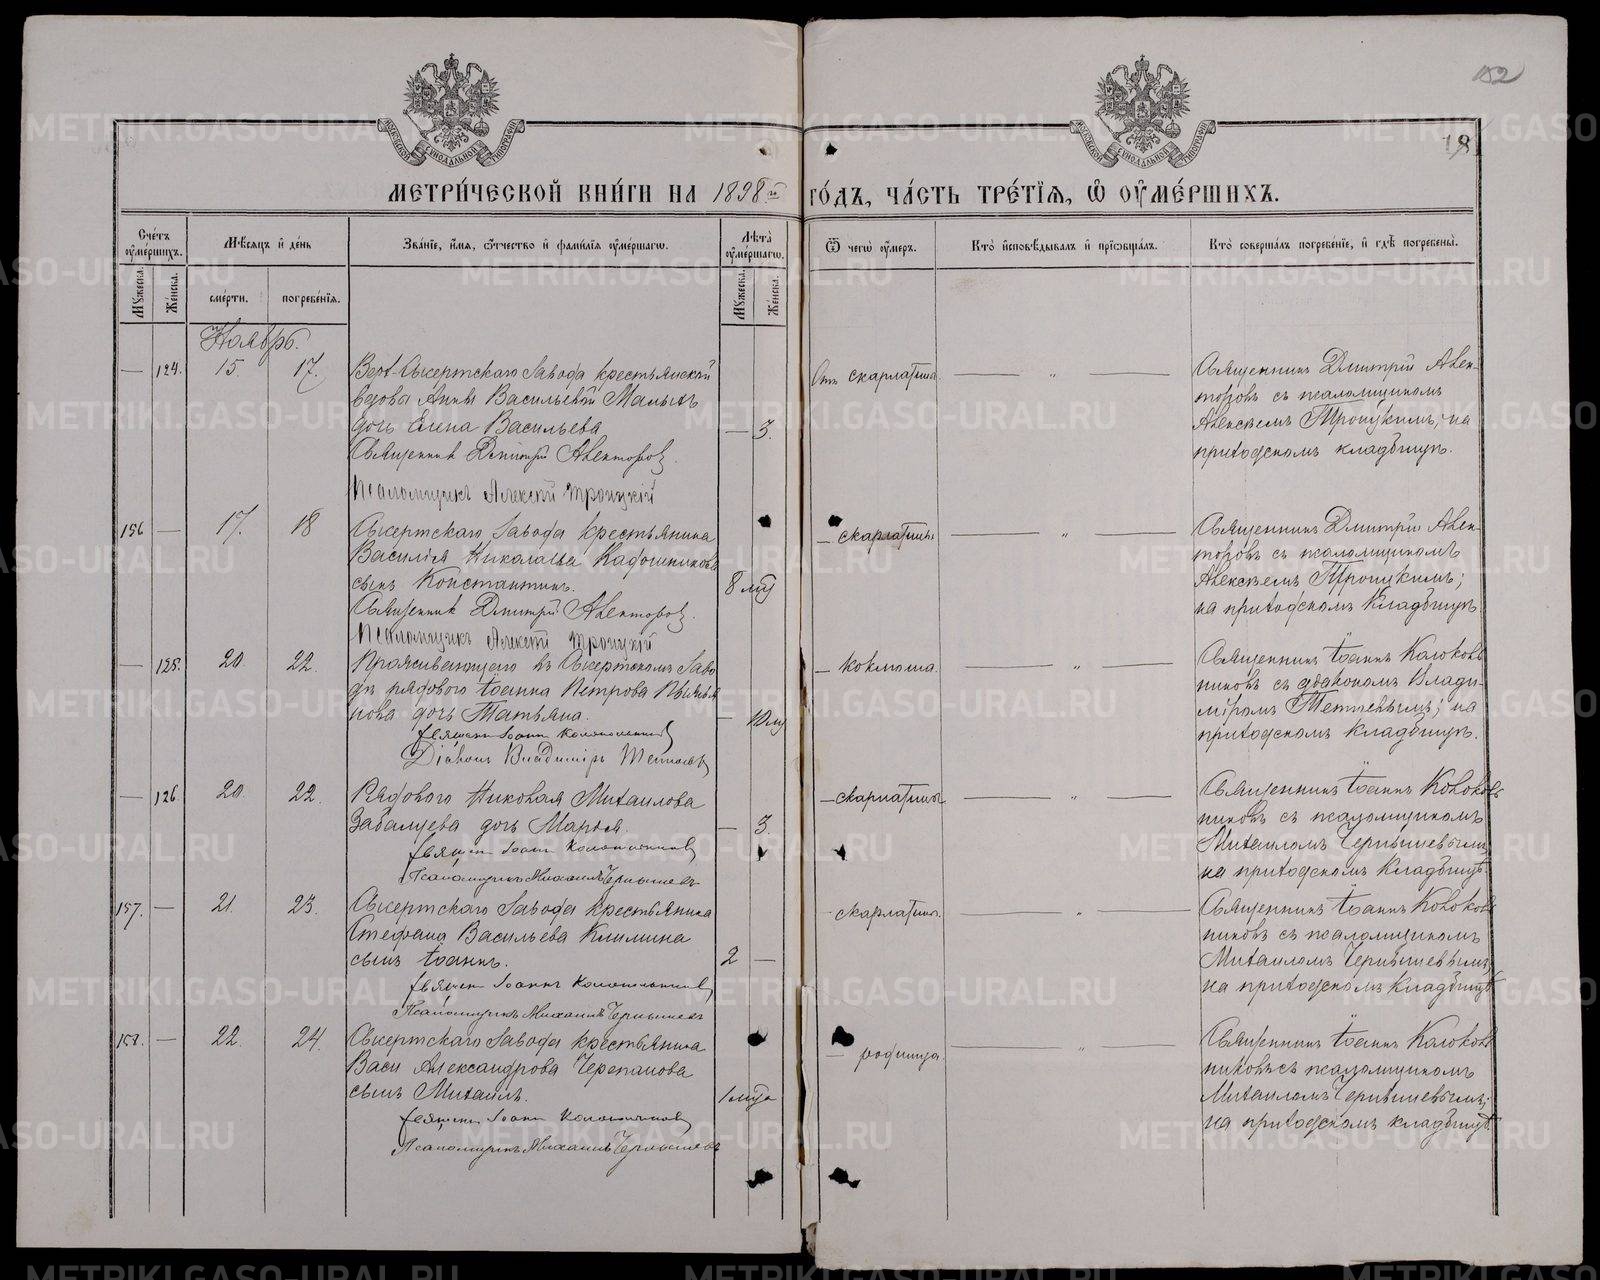 152
18
МЕТРИ́ЧЕСКОЙ КНИ́ГИ НА 1898 го́дъ, ча́сть тре́тїѧ, ѡ҆ оу҆ме́ршихъ.
Сче́тъ оу҆ме́ршихъ.
Мѣ́сѧцъ и҆ де́нь
Зва́нїе, и҆́мѧ, ѻ҆́тчество и҆ фами́лїѧ оу҆ме́ршагѡ.
Лѣ́та оу҆ме́ршагѡ.
Ѿ чегѡ̀ оу҆́меръ.
Кто̀ и҆сповѣ́дывалъ и҆ прїѡбща́лъ.
Кто̀ соверша́лъ погребе́нїе, и҆ гдѣ̀ погребены̀.
Мꙋ́жеска.
Же́нска.
сме́рти.
погребе́нїѧ.
Мꙋ́жеска.
Же́нска.
Ноябрь.
— 124. 15. 17. Верх-Сысертскаго завода крестьянской
вдовы Анны Васильевой Малыхъ
дочь Елена Васильева — 3.
Священникъ Димитрій Авенторовъ.
Псаломщикъ Алексій Троицкій
Отъ скарлатины — " —
Священникъ Дмитрій Авен-
торовъ съ псаломщикомъ
Алексѣемъ Троицкимъ; на
приходскомъ кладбищѣ.
156 — 17. 18 Сысертскаго завода крестьянина
Василія Николаева Кадошникова
сынъ Константинъ. 8 мцъ
Священникъ Дмитрій Авенторовъ.
Псаломщикъ Алексій Троицкій
— скарлатины — " —
Священникъ Дмитрій Авен-
торовъ съ псаломщикомъ
Алексѣемъ Троицкимъ;
на приходскомъ кладбищѣ.
— 125. 20. 22. Проживающаго въ Сысертскомъ заво-
дѣ рядового Іоанна Петрова
дочь Татьяна. —
Священ. Іоаннъ Колокольниковъ
Діаконъ Владимиръ
— коклюша. — " —
Священникъ Іоаннъ Колоколь-
никовъ съ діакономъ Влади-
міромъ на
приходскомъ кладбищѣ.
— 126. 20. 22. Рядового Николая Михаилова
дочь Марья. — 3.
Священ. Іоаннъ Колокольниковъ
Псаломщикъ Михаилъ Чернышевъ
— скарлатины — " —
Священникъ Іоаннъ Колоколь-
никовъ съ псаломщикомъ
Михаиломъ Чернышевымъ;
на приходскомъ кладбищѣ.
157. — 21. 23. Сысертскаго завода крестьянина
Стефана Васильева Климина
сынъ Іоаннъ. 2 —
Священ. Іоаннъ Колокольниковъ
Псаломщикъ Михаилъ Чернышевъ
— скарлатины. — " —
Священникъ Іоаннъ Колоколь-
никовъ съ псаломщикомъ
Михаиломъ Чернышевымъ;
на приходскомъ кладбищѣ
158. — 22. 24. Сысертскаго завода крестьянина
Васи Александрова Черепанова
сынъ Михаилъ. 1 мца
Священ. Іоаннъ Колокольниковъ
Псаломщикъ Михаилъ Чернышевъ
— родимца. — " —
Священникъ Іоаннъ Колоколь-
никовъ съ псаломщикомъ
Михаиломъ Чернышевымъ;
на приходскомъ кладбищѣ.
METRIKI.GASO-URAL.RU